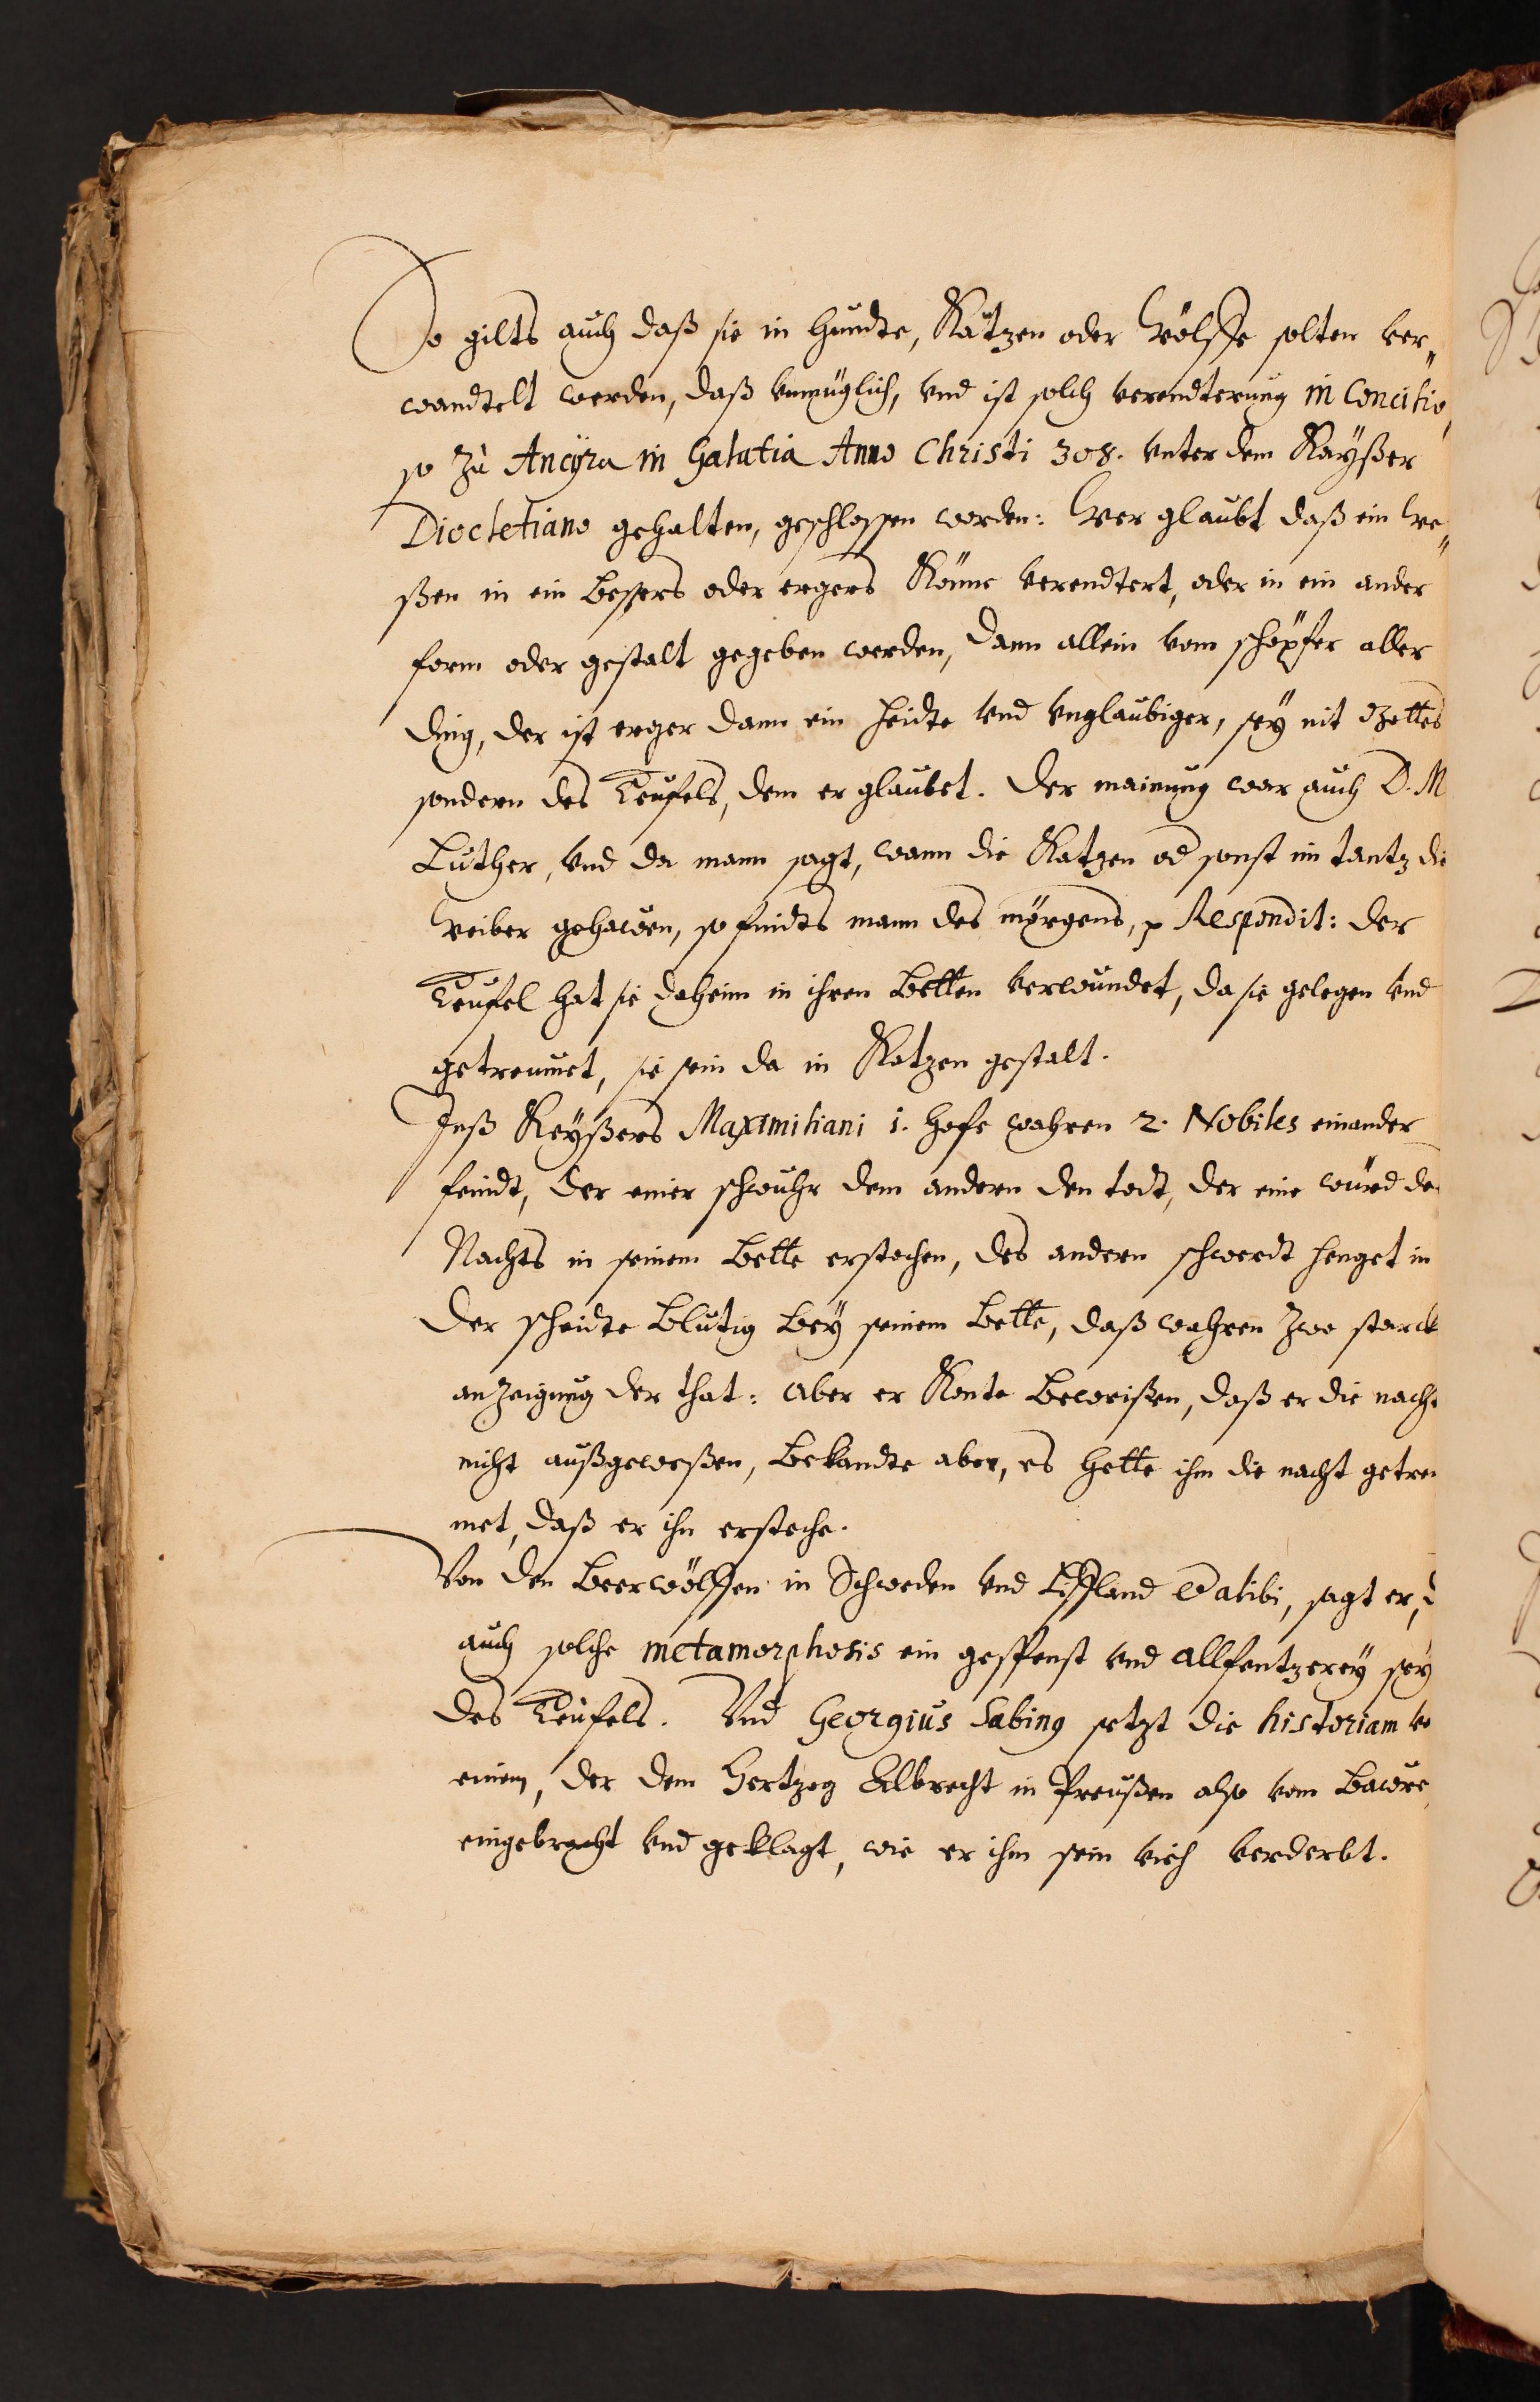 So gilts auch daß sie in hundte, Katzen oder wölffe solten ver„
wandtelt werden, daß vnmüglich, vnd ist solch verendterung in Concilio,
so zu Ancÿra in Galatia Anno Christi 308. vnter dem Kaÿßer
Diocletiano gehalten, geschlossen worden: Wer glaubt daß ein We„
ßen in ein bessers oder ergers Könne verendtert, oder in ein ander
form oder gestalt gegeben werden, dann allein vom schöpfer aller
ding, der ist erger dann ein heidte vnd vnglaubiger, seÿ nit Gottes
sondern des Teufels, dem er glaubet. Der mainung war auch D. M
Luther, vnd da mann sagt, wann die Katzen od sonst im tantz die
Weiber gehawen, so findts mann des morgens, p Respondit: der
Teufel hat sie daheim in ihren Betten verwundet, da sie gelegen vnd
getreumet, sie sein da in Katzen gestalt.
Inß Keÿßers Maximiliani 1. hofe wahren 2. Nobiles einander
feindt, der einer schwuhr dem andern den todt, der eine würd de
Nachts in seinem Bette erstochen, des andern schwerdt henget in
der scheidte blutig beÿ seinem Bette, daß wahren zwo starck
anzeigung der that: aber er Konte Beweißen, daß er die nacht
nicht außgeweßen, bekandte aber, es hette ihm die nacht getreu
met, daß er ihn ersteche.
Von den Beerwölffen in Schweden vnd Liffland et alibi, sagt er, d
auch solche metamorphosis ein gespenst vnd allfentzereÿ seÿ
des Teufels. Vnd Georgius Sabing setzt die historiam vo
einem, der dem Hertzog Albrecht in Preußen also vom Bawre
eingebracht vnd geklagt, wie er ihm sein vieh verderbt.